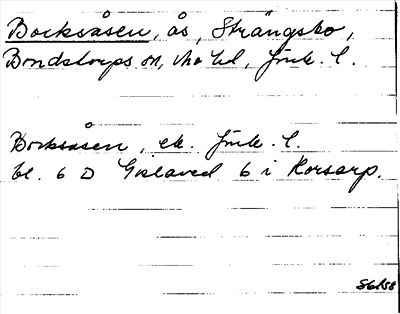 Bocksåsen, ås, Strängsbo,
Bondstorps sn, Mo hd, Jönk. l.
Bocksåsen, ek. Jönk. l.
bl. 6 D Gislaved 6 i Korsarp.